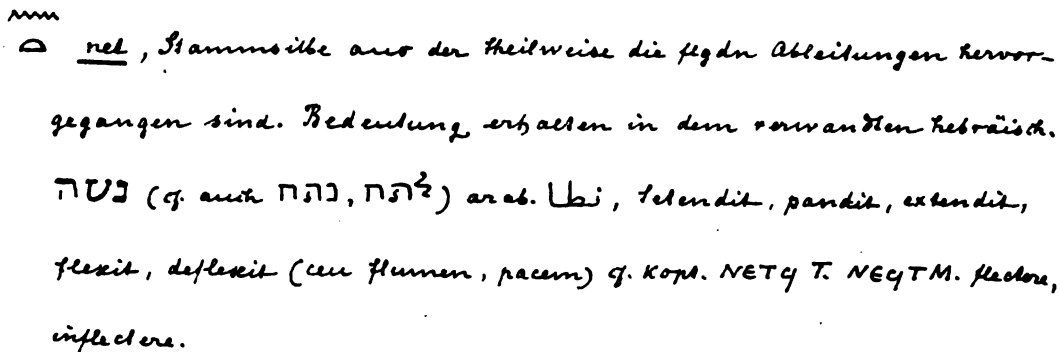 𓈖
𓏏 net, Stammsilbe aus der theilweise die flgdn Ableitungen hervor-
gegangen sind. Bedeutung erhalten in dem verwandten hebräisch.
נטה (cf. auch נתח, לתח) arab. نطا, tetendit, pandit, extendit,
flexit, deflexit (ceu flumen, pacem) cf. Kopt. ⲚⲈⲦϤ T. ⲚⲈϤⲦ M. flectere,
inflectere.